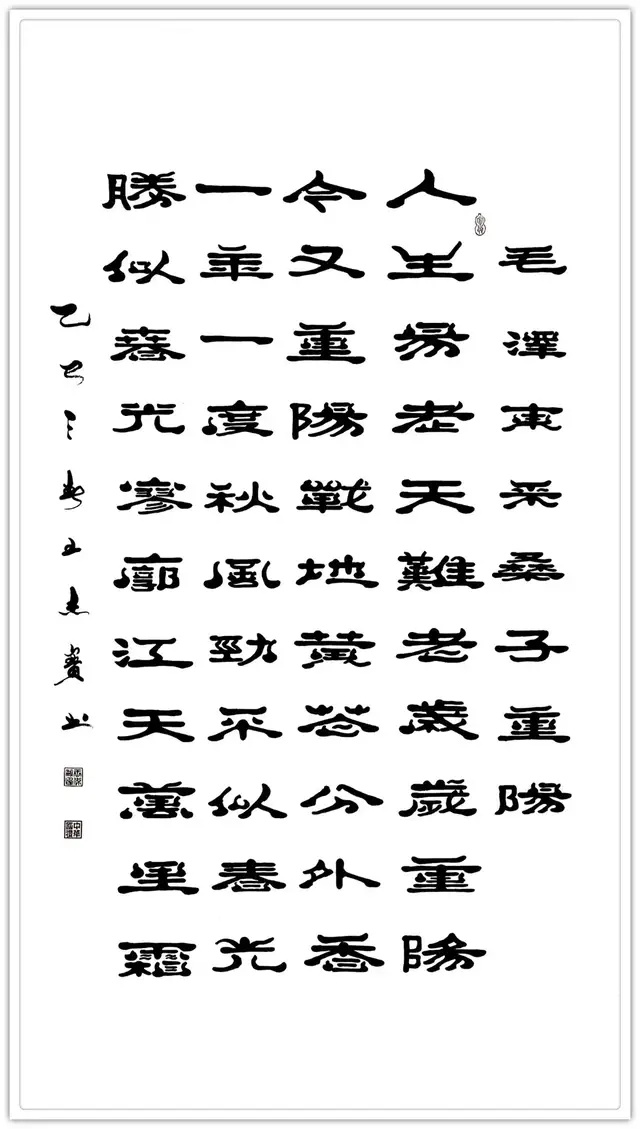 毛澤東采桑子重陽
人生易老天難老歲歲重陽
今又重陽戰地黃花分外香
一年一度秋風勁不似春光
勝似春光寥廓江天萬里霜
乙巳之春王寶书